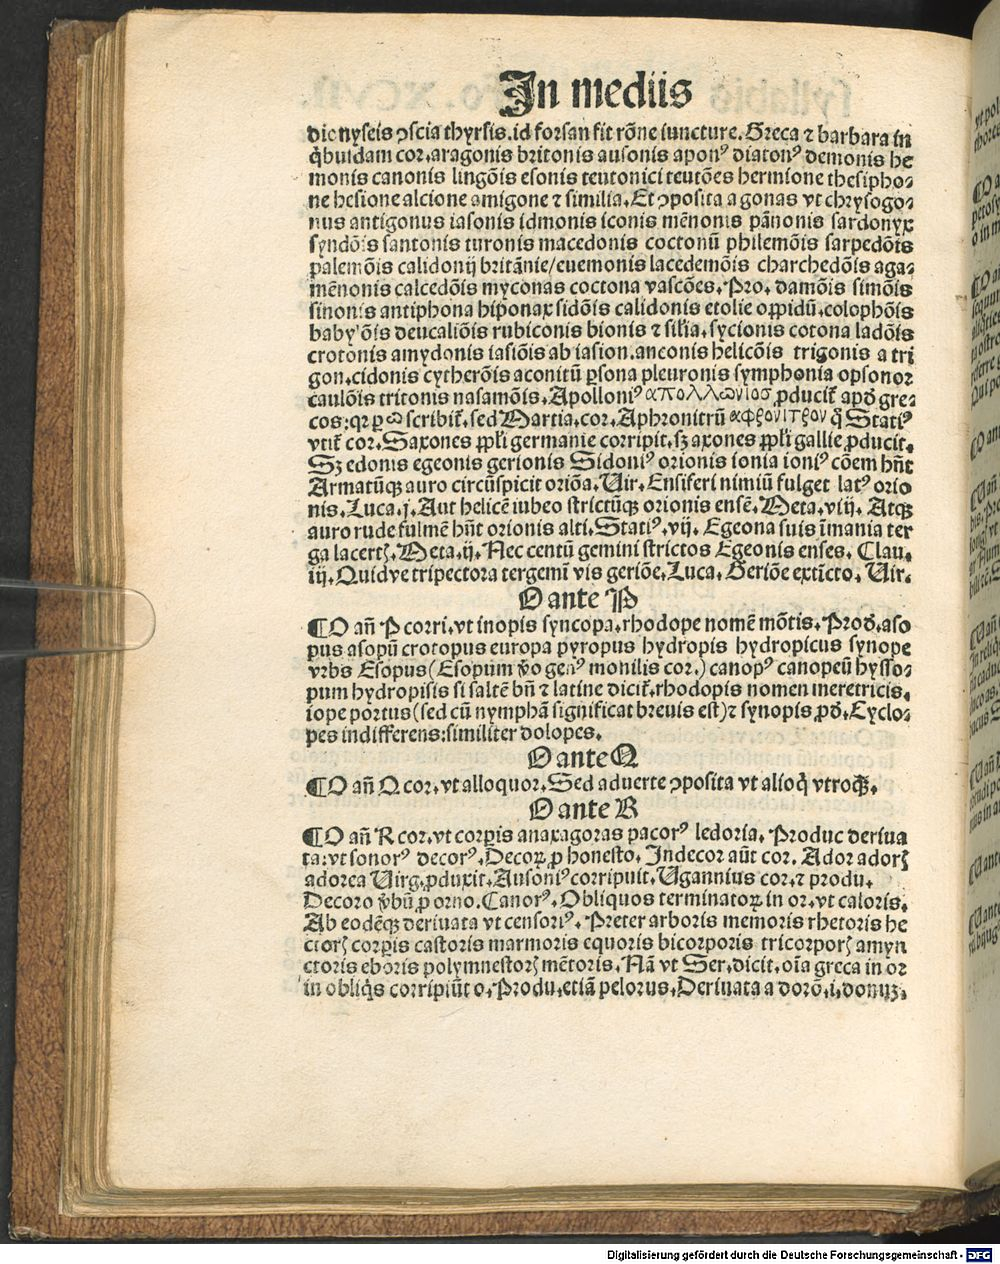 In mediis
dionyseis ↄscia thyrsis. id forsan fit rōne iuncture. Greca ⁊ barbara in
q̇buidam cor. aragonis britonis ausonis aponꝰ diatonꝰ demonis he
monis canonis lingōis esonis teutonici teutōes hermione thesipho⸗
ne hesione alcione amigone ⁊ similia. Et ↄposita a gonas vt chrysogo⸗
nus antigonus iasonis idmonis iconis mēnonis pānonis sardonyx
syndōis santonis turonis macedonis coctonū philemōis sarpedōis
palemōis calidonij britānie/euemonis lacedemōis charchedōis aga⸗
mēnonis calcedōis myconas coctona vascōes. Pro. damōis simōis
sinonis antiphona hiponax sidōis calidonis etolie oppidū. colophōis
babyl'ōis deucaliōis rubiconis bionis ⁊ sil'ia. sycionis cotona ladōis
crotonis amydonis iasiōis ab iasion. anconis helicōis trigonis a tri
gon. cidonis cytherōis aconitū ꝑsona pleuronis symphonia opsonor
caulōis tritonis nasamōis. Apolloniꝰ απολλωνιος ꝓducit̄ apđ gre⸗
cos: qꝛ ꝑ ω scribit̄. sed Martia. cor. Aphronitrū αφρονιτρον q̄ Statiꝰ
vtit̄ cor. Saxones ppl'i germanie corripit. sꝫ axones ppl'i gallie ꝓducit.
Sꝫ edonis egeonis gerionis Sidoniꝰ orionis ionia ioniꝰ cōem hn̄t
Armatūqꝫ auro circūspicit oriōa. Uir. Ensiferi nimiū fulget latꝰ orio
nis. Luca. j. Aut helicē iubeo strictūqꝫ orionis ensē. Meta. viij. Atqꝫ
auro rude fulmē hn̄t orionis alti. Statiꝰ. vij. Egeona suis īmania ter
ga lacertꝭ. Meta. ij. Nec centū gemini strictos Egeonis enses. Clau.
iij. Quidve tripectora tergemī vis geriōe. Luca. Geriōe extīcto. Uir.
O ante P
¶O an̄ P corri. vt inopis syncopa. rhodope nomē mōtis. Prođ. aso
pus asopū crotopus europa pyropus hydropis hydropicus synope
vrbs Esopus (Esopum v̄o genꝰ monilis cor.) canopꝰ canopeū hysso⸗
pum hydropisis si saltē bn̄ ⁊ latine dicit̄. rhodopis nomen meretricis.
iope portus (sed cū nymphā significat breuis est) ⁊ synopis pđ. Cyclo⸗
pes indifferens: similiter dolopes.
O ante Q
¶O an̄ Q cor. vt alloquor. Sed aduerte ↄposita vt alioq̇ vtroqꝫ.
O ante R
¶O an̄ R cor. vt corꝑis anaxagoras pacorꝰ ledoria. Produc deriua
ta: vt sonorꝰ decorꝰ. Decoꝝ ꝓ honesto. Indecor aūt cor. Ador adorꝭ
adorea Uirg. ꝓduxit. Ausoniꝰ corripuit. Ugannius cor. ⁊ produ.
Decoro v̄bū ꝓ orno. Canorꝰ. Obliquos terminatoꝝ in or. vt caloris.
Ab eodēqꝫ deriuata vt censoriꝰ. Preter arboris memoris rhetoris he
ctorꝭ corꝑis castoris marmoris equoris bicorporis tricorporꝭ amyn
ctoris eboris polymnestorꝭ mētoris. Nā vt Ser. dicit. oīa greca in or
in obliq̇s corripiūt o. Produ. etiā pelorus. Deriuata a dorō. i. donuꝫ.
Digitalisierung gefördert durch die Deutsche Forschungsgemeinschaft - DFG